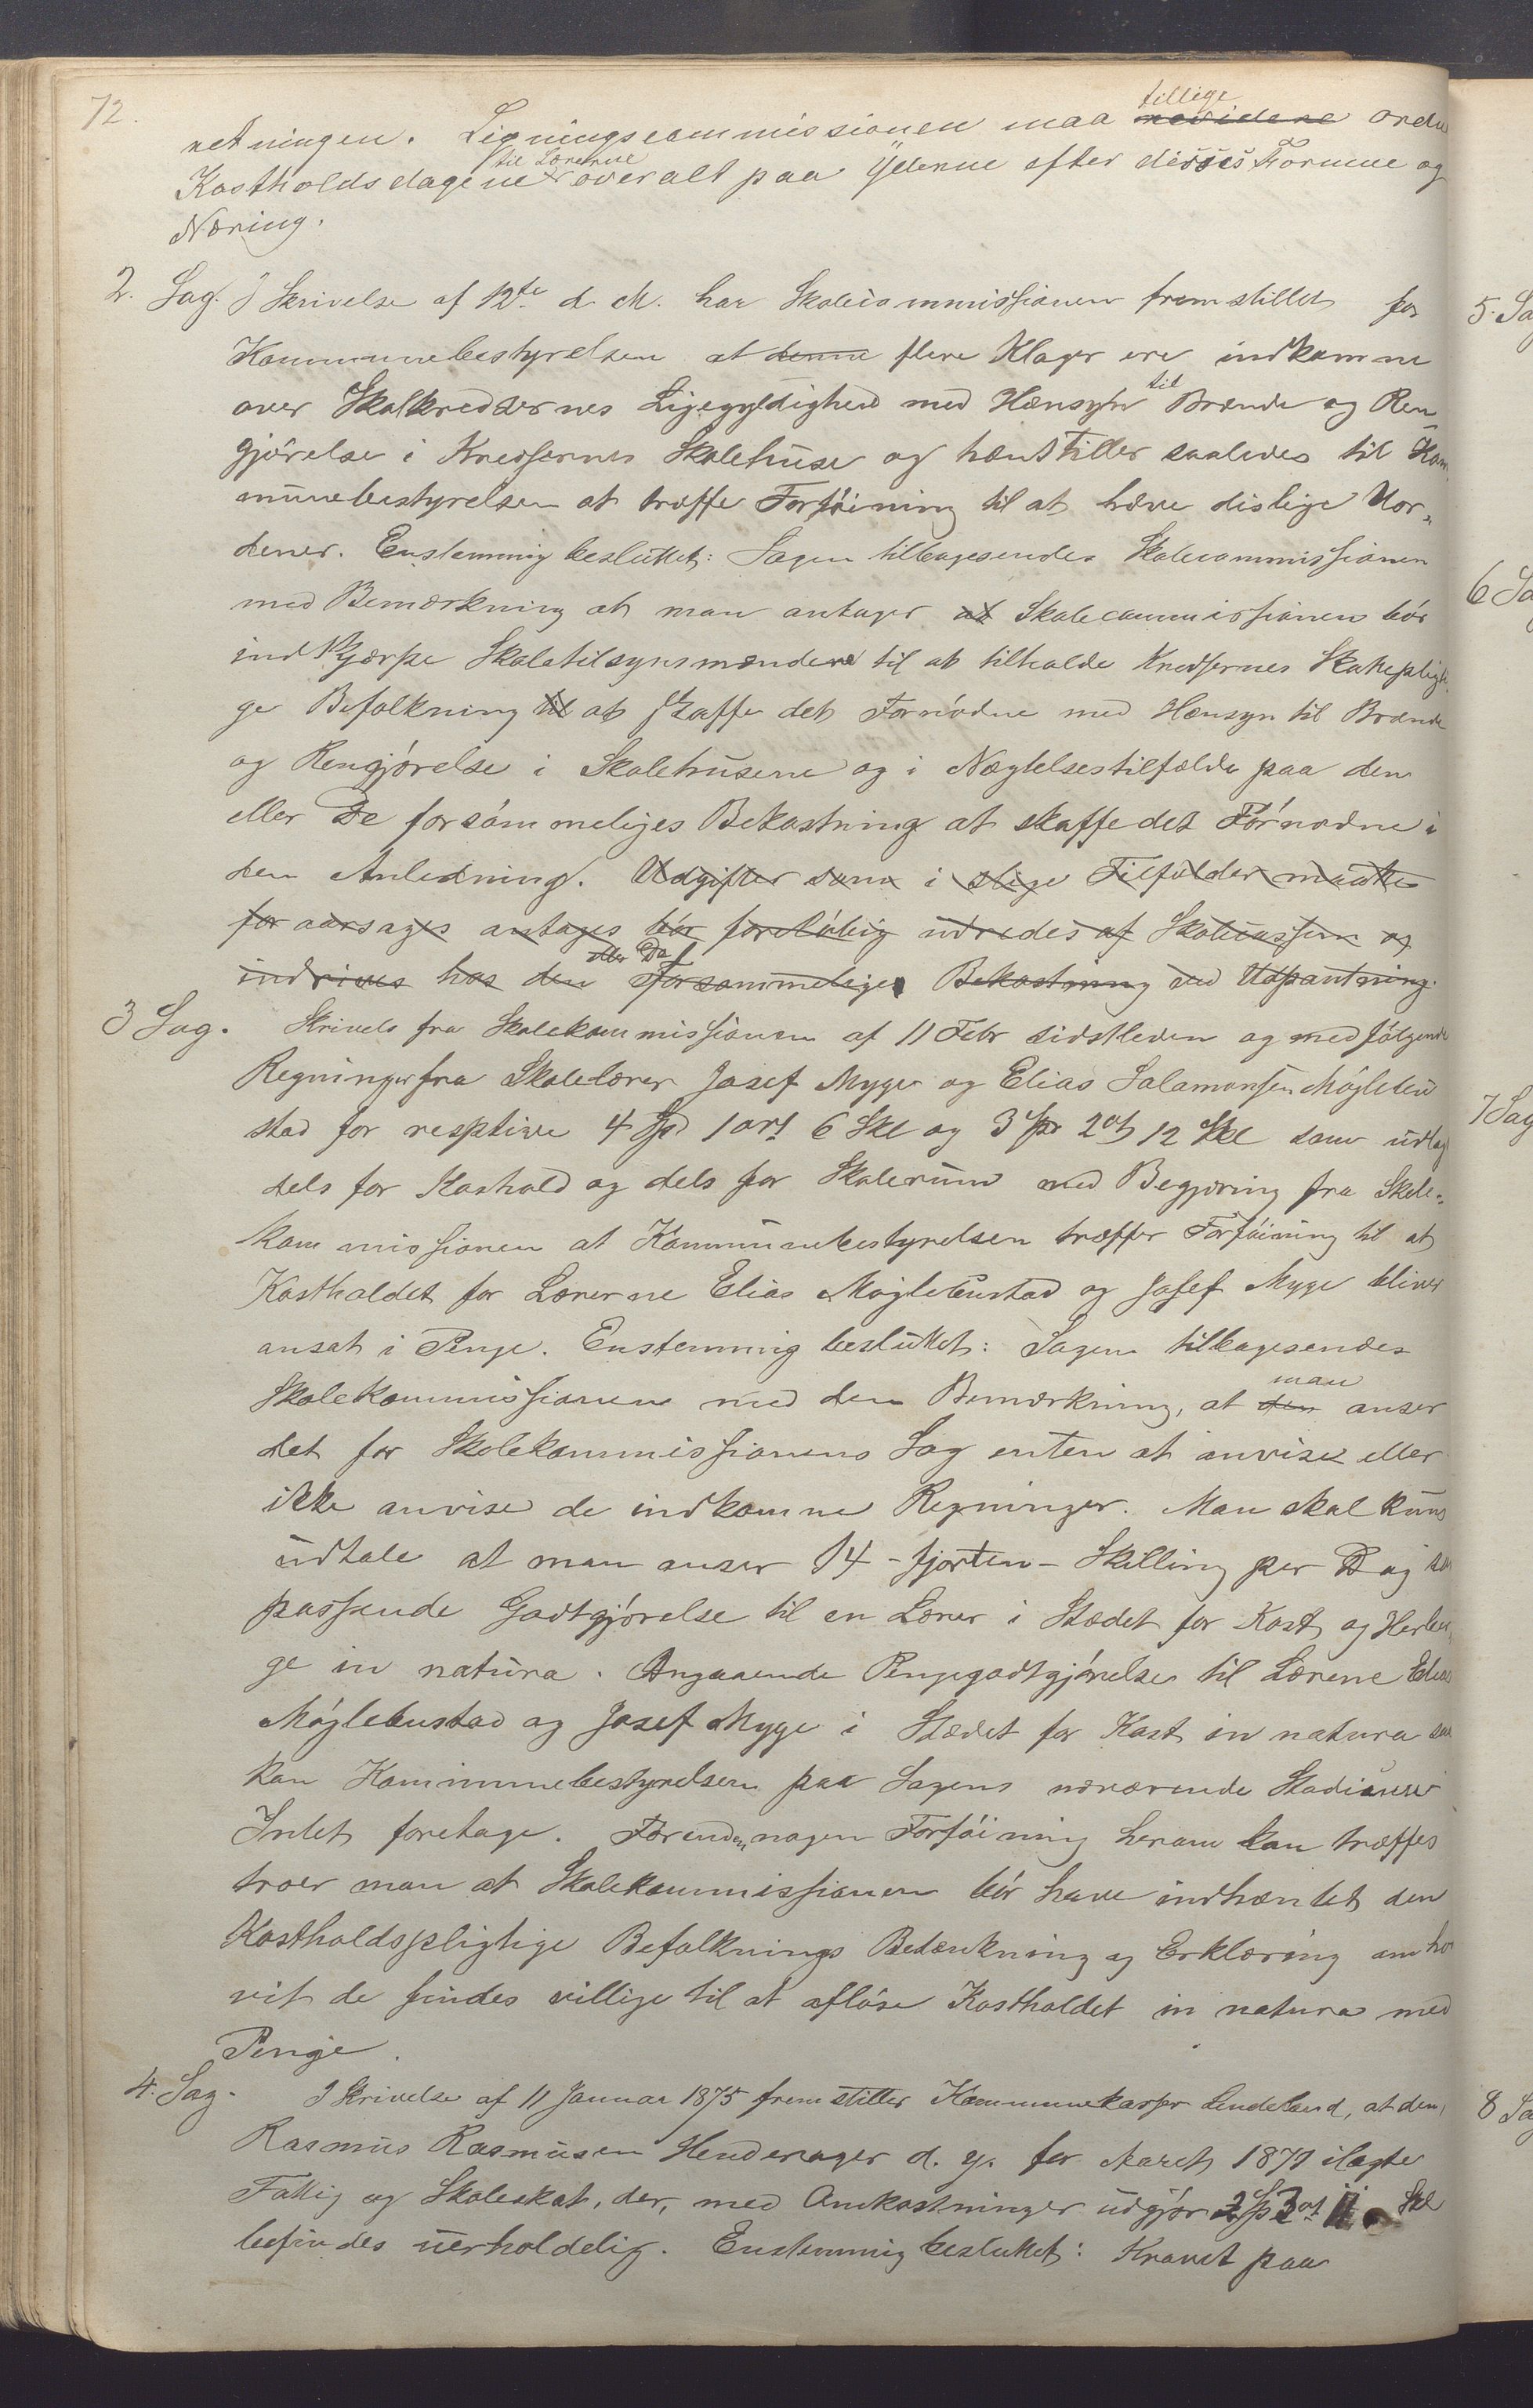 72.
retningen. Ligningscommissionen maa tillige revidere ordne
Kostholdsdagene til Lærerne overalt paa Yderne efter disses Formue og
Næring.
2. Sag. I Skrivelse af 12te d. M. har Skolecommmissionen fremstillet for
Kommunebestyrelsen at denne flere Klager ere indkomne
over Skolkredsernes Ligegyldighed med Hensyn til Brænde og Ren-
gjörelse i Kredsernes Skolehuse og henstiller saaledes til Kom
munebestyrelsen at træffe Forföining til at hæve dislige Uor-
dener. Enstemmig besluttet: Sagen tilbagesendes Skolecommissionen
med Bemærkning at man antager at Skolecommissionen bör
indskjærpe Skoletilsynsmændene til at tilholde Kredsernes Skolepligti
ge Befolkning til at skaffe det Fornödne med Hensyn til Brænde
og Rengjörelse i Skolehusene og i Nægtelsestilfælde paa den
eller De forsömmeliges Bekostning at skaffe det Fornødne i
den Anledning. Udgifter som i slige Tilfælder maatte
foraarsages antages bör foreløbig udredes af Skolecassen og
indrives hos den eller De Forsømmeliges Bekostning ved Udpantning.
3 Sag. Skrivels fra Skolekommissionen af 11 Febr sidstleden og medfölgende
Regninger fra Skolelærer Josef Myge og Elias Salamonsen Möglebu
stad for resptive 4 Spd 1 ort 6 Skl og 3 Spd 2 ort 12 Skl som udlag
dels for Kosthold og dels for Skolerum med Begjæring fra Skole-
kommissionen at Kommunebestyrelsen træffer Forföining til at
Kostholdet for Lærerne Elias Möglebustad og Josef Myge bliver
ansat i Penge. Enstemmig besluttet: Sagen tilbagesendes
Skolekommissionen med den Bemærkning, at den man anser
det for Skolekommissionens Sag enten at anvise eller
ikke anvise de indkomne Regninger. Man skal kuns
udtale at man anser 14 - fjorten - Skilling per Dag som
passende Godtgjörelse til en Lærer i Stædet for Kost og Herber
ge in natura. Angaaende Pengegodtgjörelse til Lærene Elias
Möglebustad og Josef Myge i Stædet for Kost in natura saa
kan Kommunebestyrelsen paa Sagens nærværende Stadium
Intet foretage. Forenden nogen Forföining herom kan træffes
troer man at Skolekommissionen bör have indhentet den
Kostholdspligtige Befolknings Betænkning og Erklæring om hvor
vit de findes villige til at aflöse Kostholdet in natura med
Penge.
4. Sag. I Skrivelse af 11 Januar 1875 fremstiller Kommunekasser Lindeland, at den
Rasmus Rasmusen Henderager d. y. for Aaret 1871 ilagte
Fattig og Skoleskat, der, med Omkostninger udgjör 2 Sp 3 ort 11 Skl
befindes uerholdelig. Enstemmig besluttet: Kravet paa
5. Sa
6 Sa
7 Sag
8 Sa